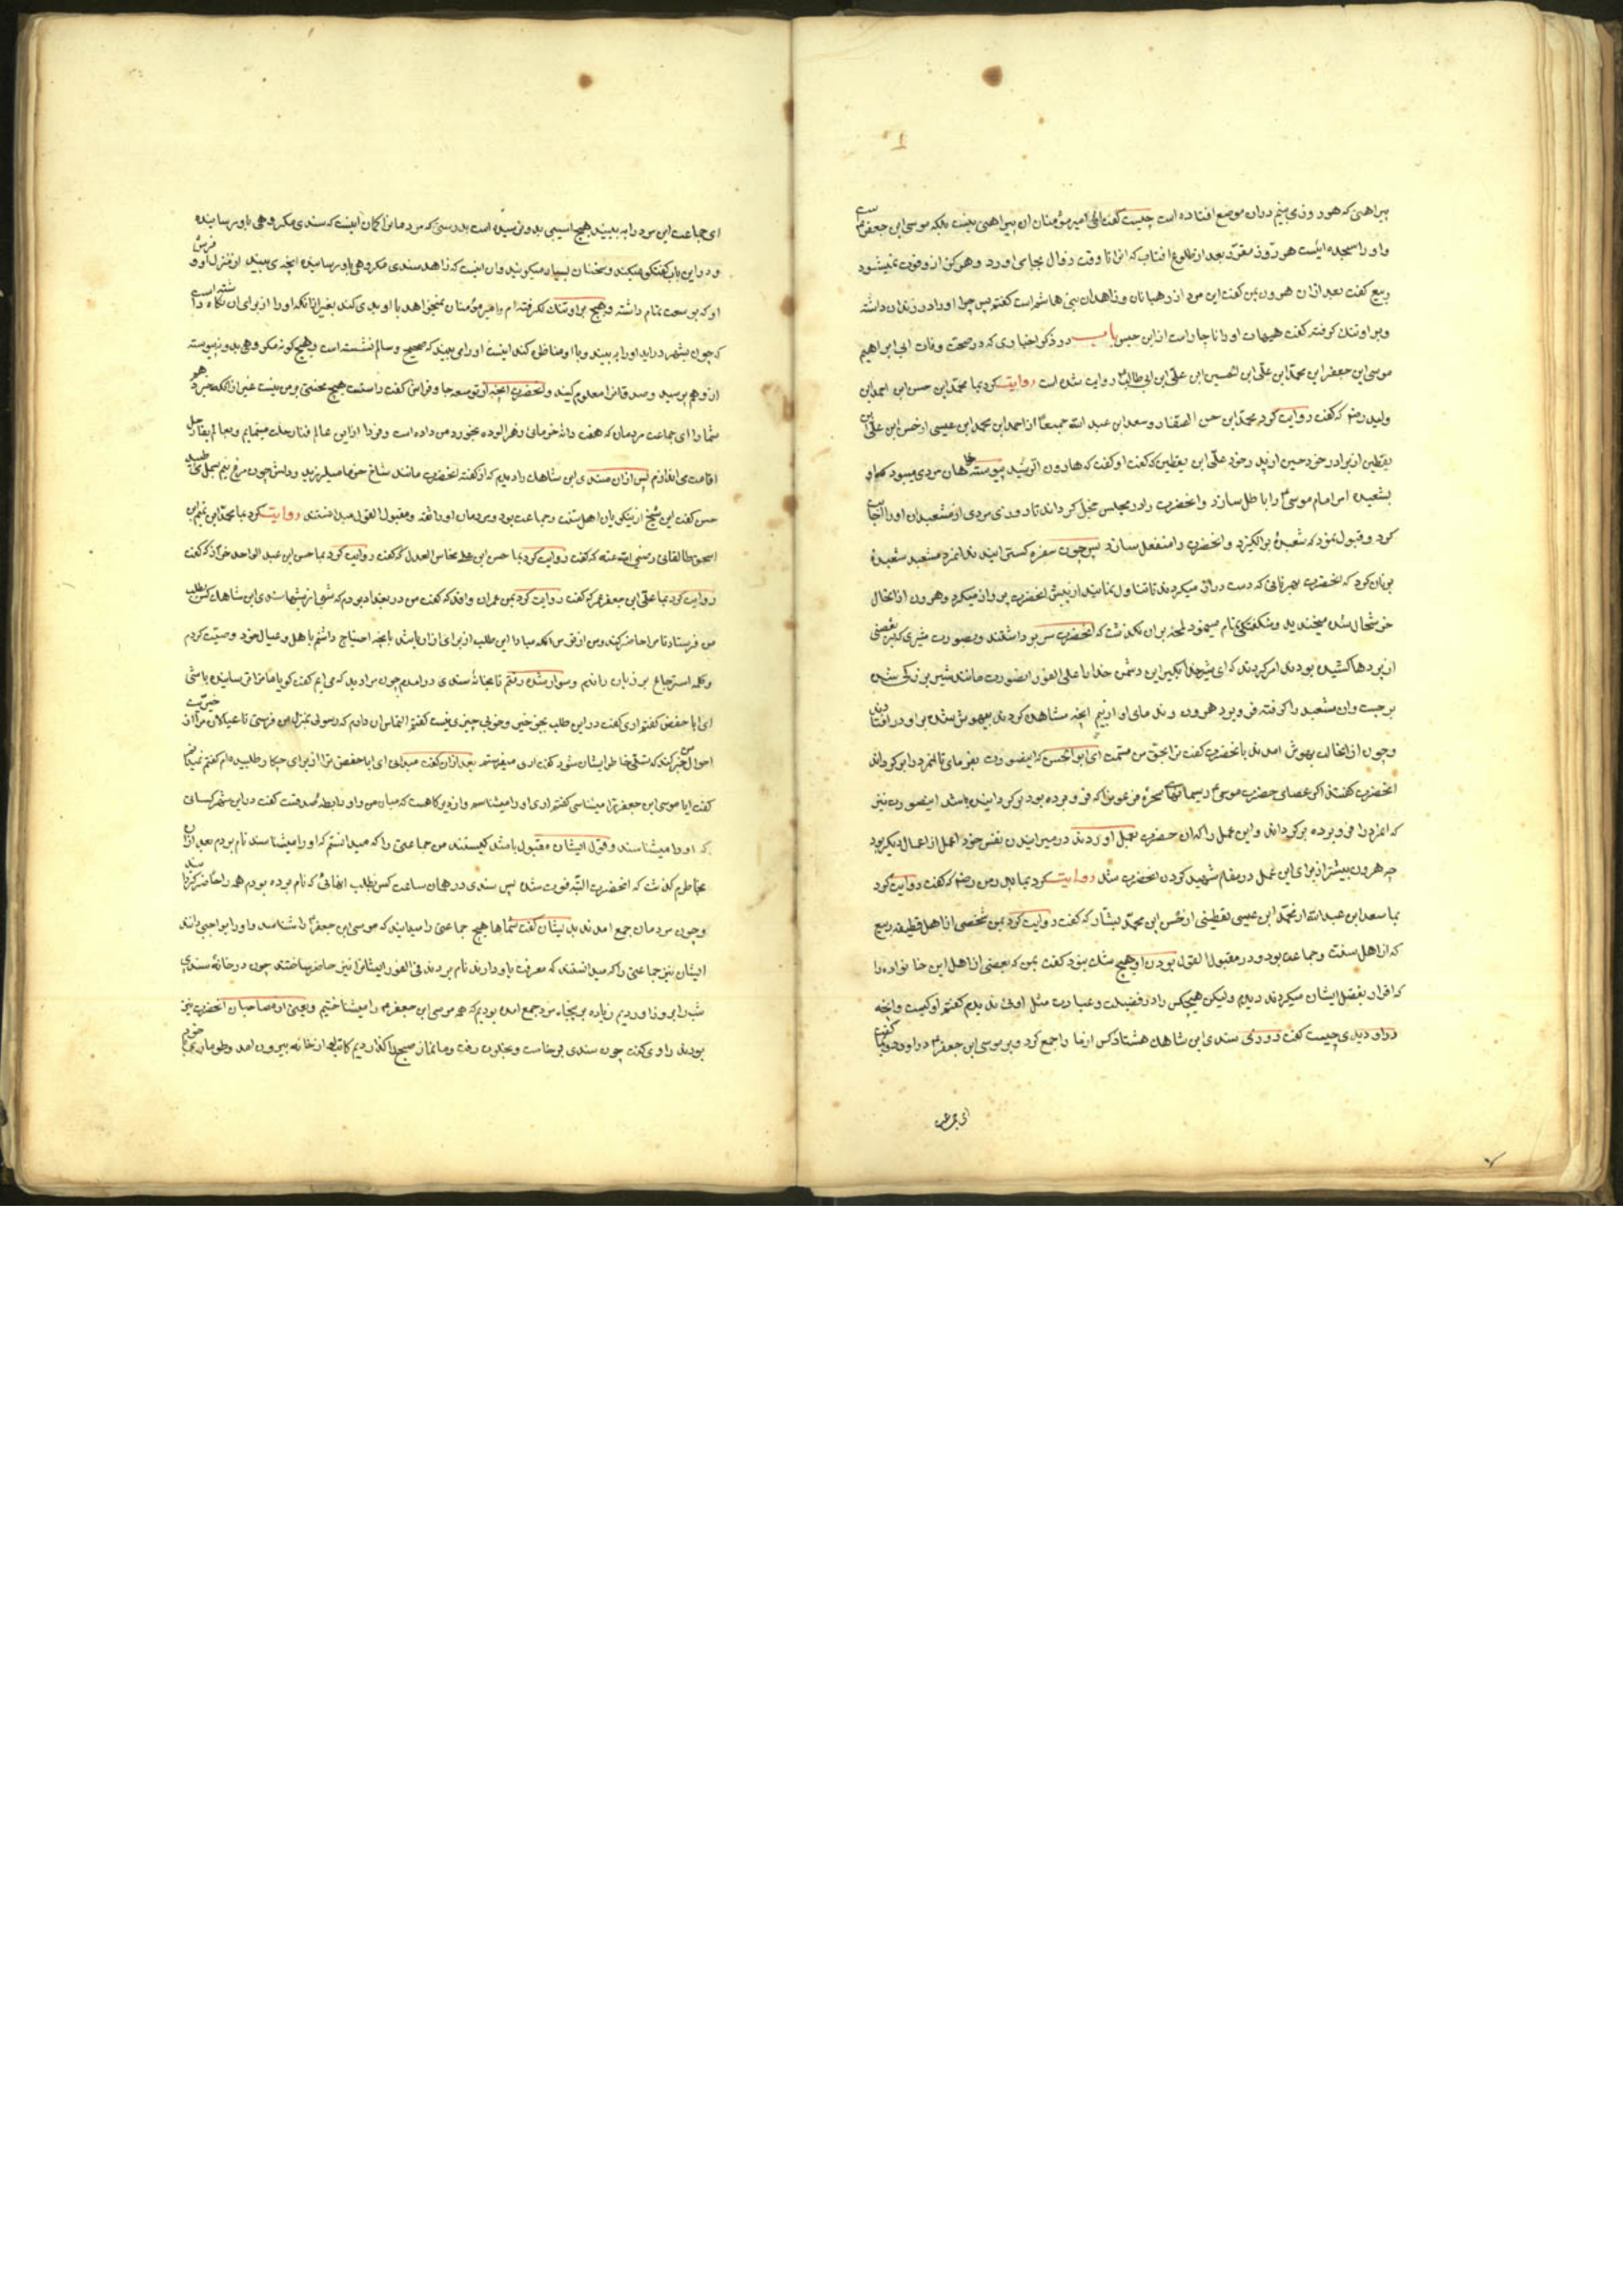 پیراهنی که هر روز می بینم در ان موضع افتاده است چیست گفت ای امیر مؤمنان ان پیراهنی نیست بلکه موسی ابن جعفر است
و او را سجده ایست هر روز مقرر بعد از طلوع افتاب که انرا تا وقت زوال بجا می اورد و هرگز از او فوت نمیشود
ربیع گفت بعد از ان هرون بمن گفت این مرد از رهبانان و زاهدان بنی هاشم است گفتم پس چرا او را در زندان داشته
و بر او تنگ گرفته گفت هیهات او را ناچار است از این حبس باب در ذکر اخباری که در صحت وفات ابی ابراهیم
موسی ابن جعفر ابن محمد ابن علی ابن الحسین ابن علی ابن ابی طالب روایت شده است روایت کرد بما محمد ابن حسن ابن احمد ابن
ولید رضه که گفت روایت کرد محمد ابن حسن الصفار و سعد ابن عبد الله جمیعا از احمد ابن محمد ابن عیسی از حسن ابن علی ابن
یقطین از برادر خود حسین از پدر خود علی ابن یقطین که گفت او گفت که هارون الرشید پیوسته خواهان مردی میبود که او
بشعبده امر امام موسی را باطل سازد و انحضرت را در مجلس خجل گرداند تا روزی مردی از مشعبدان او را اجابت
کرد و قبول نمود که شعبدهٔ برانگیزد و انحضرت را منفعل سازد پس چون سفره گستر انیدند انمرد مشعبد شعبدهٔ
بر نان کرد که انحضرت بهر نانی که دست دراز میکردند تا تناول نمایند از پیش انحضرت پرواز میکرد و هرون از انحال
خوشحال شده میخندید و شکفتگی تمام مینمود لمحهٔ بر ان نگذشت که انحضرت سر برداشتند و بصورت شیری که بر بعضی
از پردها کشیده بودند امر کردند که ای شیر خدا بگیر این دشمن خدا را علی الفور انصورت مانند شیر بزرگی شده
برجست و ان مشعبد را گرفته فرو برد هرون و ندمای او از بیم انچه مشاهده کردند بیهوش شده بر او در افتادند
و چون از انحالت بهوش امدند بانحضرت گفت ترا بحق من قسمت ای ابو الحسن که اینصورت بفرمای تا انمرد را برگرداند
انحضرت گفتند اگر عصای حضرت موسی ریسمانهای سحرهٔ فرعون را که فرو برده بود برگردانیده باشد اینصورت نیز
که انمرد را فرو برده برگرداند و این عمل را که ان حضرت بعمل اوردند در میرانیدن نفس خود اعمل از اعمال دیگر بود
چه هرون بیشتر از برای این عمل در مقام شهید کردن انحضرت شد روایت کرد بما پدر من رضه که گفت روایت کرد
بما سعد ابن عبد الله از محمد ابن عیسی یقطینی از حسن ابن محمد بشار که گفت روایت کرد بمن شخصی از اهل قطیفه ربیع
که از اهل سنت و جماعت بود و در مقبول القول بودن او هیچ شک نبود گفت بمن که بعضی از اهل این خانواده را
که اقرار بفضل ایشان میکردند دیدم ولیکن هیچکس را در فضیلت و عبادت مثل او ندیدم گفتم او کیست و انچه
در او دیدی چیست گفت روزی سندی ابن شاهک هشتاد کس از ما را جمع کرد و بر موسی ابن جعفر در اورد و بما گفت
ای جماعت
ای جماعت این مرد را به بینید هیچ اسیبی بدو رسیده است بدرستی که مردمانرا گمان اینست که سندی مکروهی باو رسانیده
و در این باب گفتگو میکنند و سخنان بسیار میگویند و ان اینست که زاهد سندی مکروهی باو رسانیده انچه می بینید از منزل او و فرش
او که بوسعت تمام داشته و هیچ بر او تنگ نگرفته ام و امیر مؤمنان نمیخواهد با او بدی کند بغیر از انکه او را از برای ان نگاه داشته است
که چون بشهر دراید او را به بیند و با او مناظره کند اینست او را می بینید که صحیح و سالم نشسته است و هیچ گونه مکروهی بدو نپیوسته
از او هم بپرسید و صدق انرا معلوم کنید و انحضرت انچه از توسعه جا و فراش گفت راستست هیچ محنتی بر من نیست غیر از انکه خبر دهم
شما را ای جماعت مردمان که هفت دانهٔ خرمای زهر الوده بخورد من داده است و فردا از این عالم فنا رحلت مینمایم و بعالم بقا رحل
اقامت می اندازم پس از ان سندی ابن شاهک را دیدم که از گفته انحضرت مانند شاخ خرما میلرزید و دلش چون مرغ نیم بسمل می طپید
حسن گفت این شیخ از نیکویان اهل سنت و جماعت بود و مردمان او را ثقه و مقبول القول میدانستند روایت کرد بما محمد ابن ابرهیم ابن
اسحق طالقانی رضی الله عنه که گفت روایت کرد بما حسن ابن علی نحاس العدل که گفت روایت کرد بما حسن ابن عبد الواحد خزاز که گفت
روایت کرد بما علی ابن جعفر عمر که گفت روایت کرد بمن عمران واقد که گفت من در بغداد بودم که شبی از شبها سندی ابن شاهک کس بطلب
من فرستاد تا مرا حاضر کنند و من از خوف انکه مبادا این طلب از برای ازار باشد بانچه احتیاج داشتم باهل و عیال خود وصیت کردم
و کلمه استرجاع بر زبان راندم و سوار شده رفتم تا بخانهٔ سندی درامدم چون مرا دید که می ایم گفت گویا ما مرا ترسانیده باشی
ای ابا حفص گفتم اری گفت در این طلب بجز خیر و خوبی چیزی نیست گفتم التماس ان دارم که رسولی بمنزل من فرستی تا عیالان مرا از
احوال من خبر کند که تسلی خاطر ایشان شود گفت اری میفرستم بعد از ان گفت میدانی ای ابا حفص ترا از برای چه کار طلبیده ام گفتم نمیدانم
گفت ایا موسی ابن جعفر را میشناسی گفتم اری او را میشناسم و از دیرگاهست که میان من و او رابطهٔ صداقتست گفت در این شهر کسانی
که او را میشناسند و قول ایشان مقبول باشد کیستند من جماعتی را که میدانستم که او را میشناسند نام بردم بعد از ان
بخاطرم گذشت که انحضرت البته فوت شده پس سندی در همان ساعت کس بطلب انهائی که نام برده بودم همه را حاضر کردانید
و چون مردمان جمع امدند بدیشان گفت شماها هیچ جماعتی را میدانید که موسی ابن جعفر را شناسند و او را بواجبی دانند
ایشان نیز جماعتی را که میدانستند که معرفت باو دارند نام بردند فی الفور ایشانرا نیز حاضر ساختند چون در خانهٔ سندی
شب را بروز اوردیم زیاده بر پنجاه مرد جمع امده بودیم که همه موسی ابن جعفر را میشناختیم و بعضی از مصاحبان انحضرت نیز
بودند راوی گفت چون سندی برخاست و بخلوت رفت و ما نماز صبح را گذاردیم کاتب او از خانه بیرون امد و طوماری